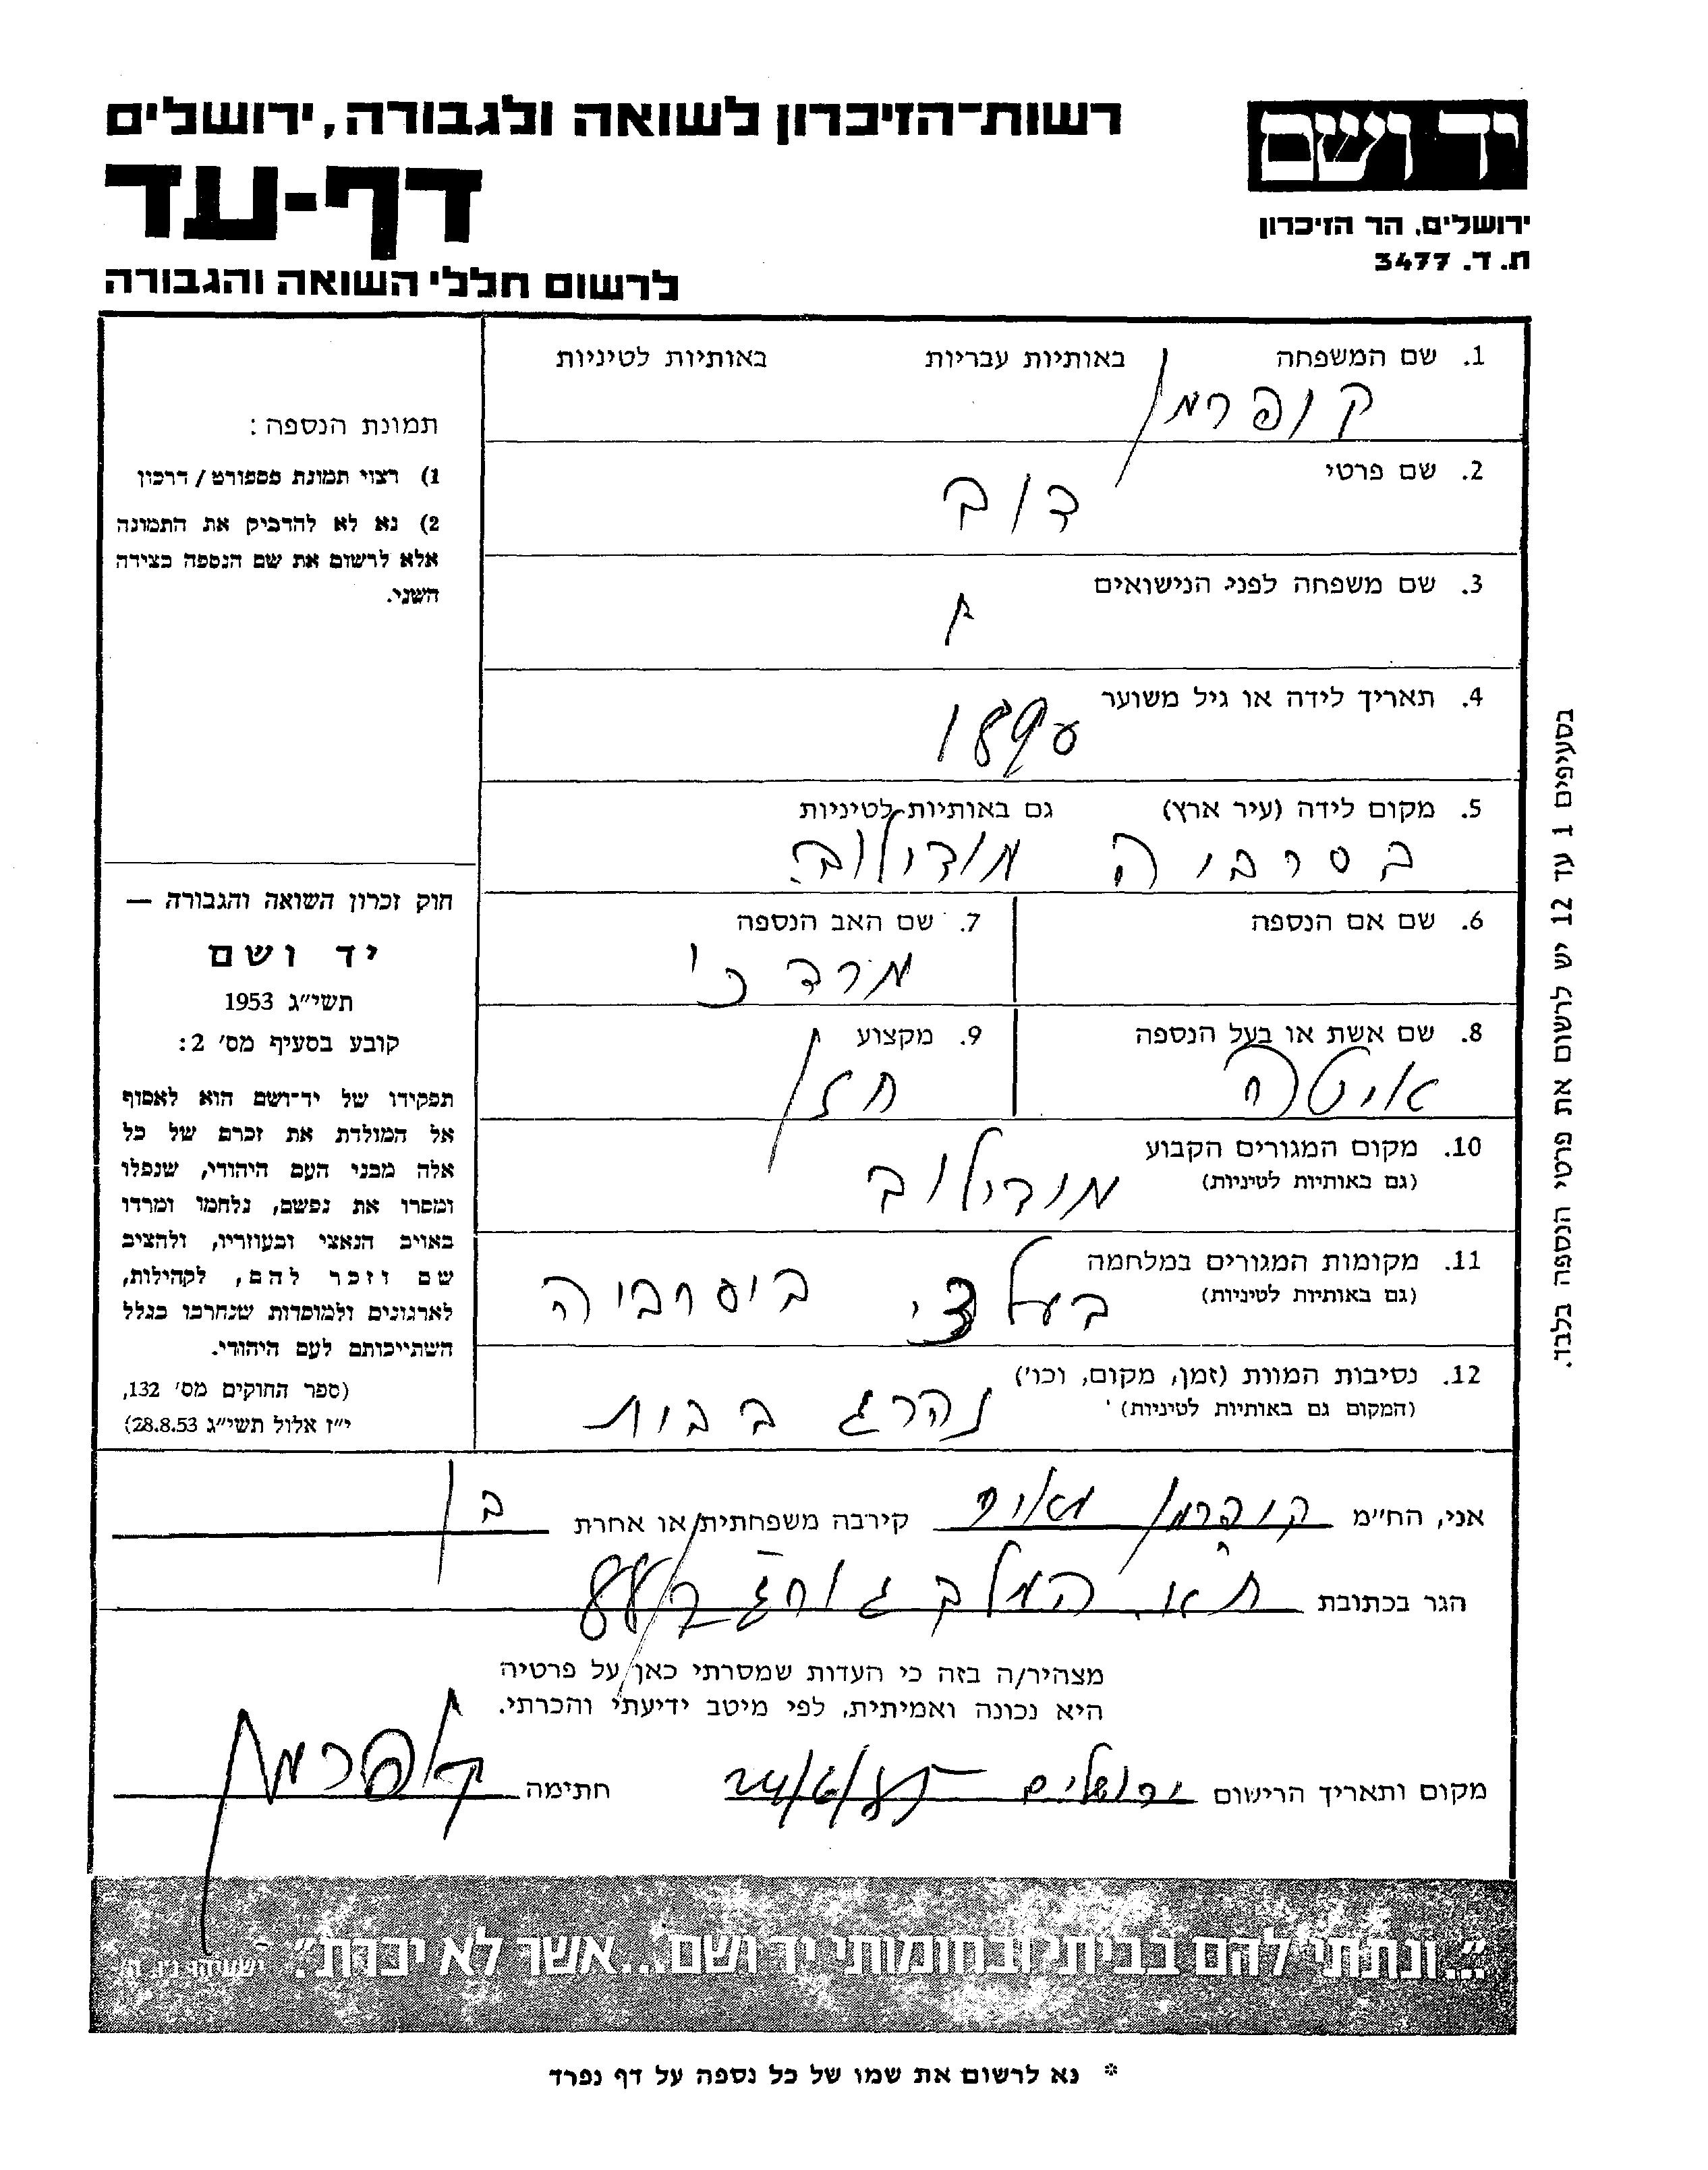 רשות-הזיכרון לשואה ולגבורה, ירושלים
דף-עד
לרשום חללי השואה והגבורה
יד ושם
ירושלים, הר הזיכרון
ת. ד. 3477
1. שם המשפחה באותיות עבריות באותיות לטיניות
קופרמן
2. שם פרטי
דוב
3. שם משפחה לפני הנישואים
4. תאריך לידה או גיל משוער
5. מקום לידה (עיר ארץ) גם באותיות לטיניות
בסרביה מודילוב
6. שם אם הנספה
7. שם האב הנספה
מרדכי
8. שם אשת או בעל הנספה
איטה
9. מקצוע
חזן
10. מקום המגורים הקבוע
(גם באותיות לטיניות)
מודילוב
11. מקומות המגורים במלחמה
(גם באותיות לטיניות)
בעלצי ביסרביה
12. נסיבות המוות (זמן, מקום, וכו')
(המקום גם באותיות לטיניות)
נהרג בבות
תמונת הנספה:
1) רצוי תמונת פספורט/דרכון
2) נא לא להדביק את התמונה
אלא לרשום את שם הנספה בצידה
השני.
חוק זכרון השואה והגבורה —
יד ושם
תשי״ג 1953
קובע בסעיף מס' 2:
תפקידו של יד-ושם הוא לאסוף
אל המולדת את זכרם של כל
אלה מבני העם היהודי, שנפלו
ומסרו את נפשם, נלחמו ומרדו
באויב הנאצי ובעוזריו, ולהציב
שם וזכר להם, לקהילות,
לארגונים ולמוסדות שנחרבו בגלל
השתייכותם לעם היהודי.
(ספר החוקים מס' 132,
י״ז אלול תשי״ג 28.8.53)
בסעיפים 1 עד 12 יש לרשום את פרטי הנספה בלבד.
אני, הח״מ קופרמן מאיר קירבה משפחתית או אחרת בן
הגר בכתובת
מצהיר/ה בזה כי העדות שמסרתי כאן על פרטיה
היא נכונה ואמיתית, לפי מיטב ידיעתי והכרתי.
מקום ותאריך הרישום ירושלים חתימה קופרמן
״...ונתתי להם בביתי ובחומותי יד ושם...אשר לא יכרת״. ישעיהו נ״ו, ה׳
* נא לרשום את שמו של כל נספה על דף נפרד